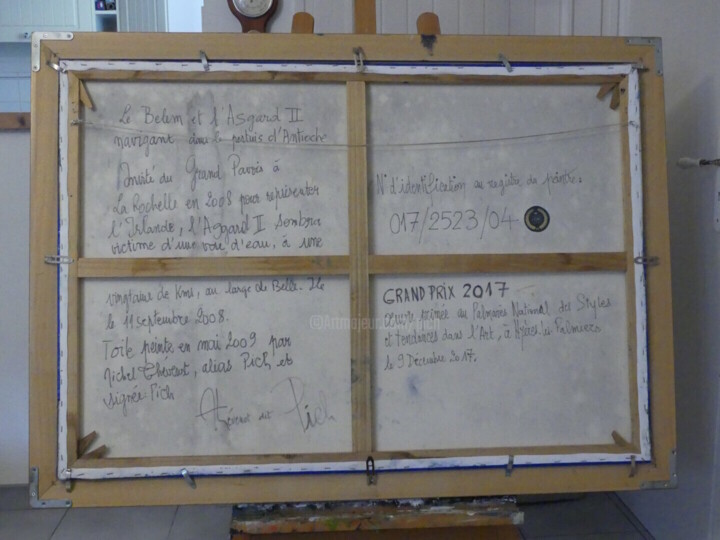 Le Belem et l'Asgard II
navigant dans le pertuis d'Antioche
Invité du Grand Pavois à
La Rochelle en 2008 pour représenter
l'Irlande, l'Asgard II sombra
victime d'une voie d'eau, à une
vingtaine de Kms, au large de Belle-Ile
le 11 septembre 2008.
Toile peinte en mai 2009 par
Michel Thévenot, alias Pich, et
signée Pich
Thévenot dit Pich
N° d'identification au registre du peintre:
017/2523/04
GRAND PRIX 2017
œuvre primée au Palmarès National des Styles
et tendances dans l'Art, à Hyères les Palmiers
le 9 Décembre 2017.
©Artmajeur